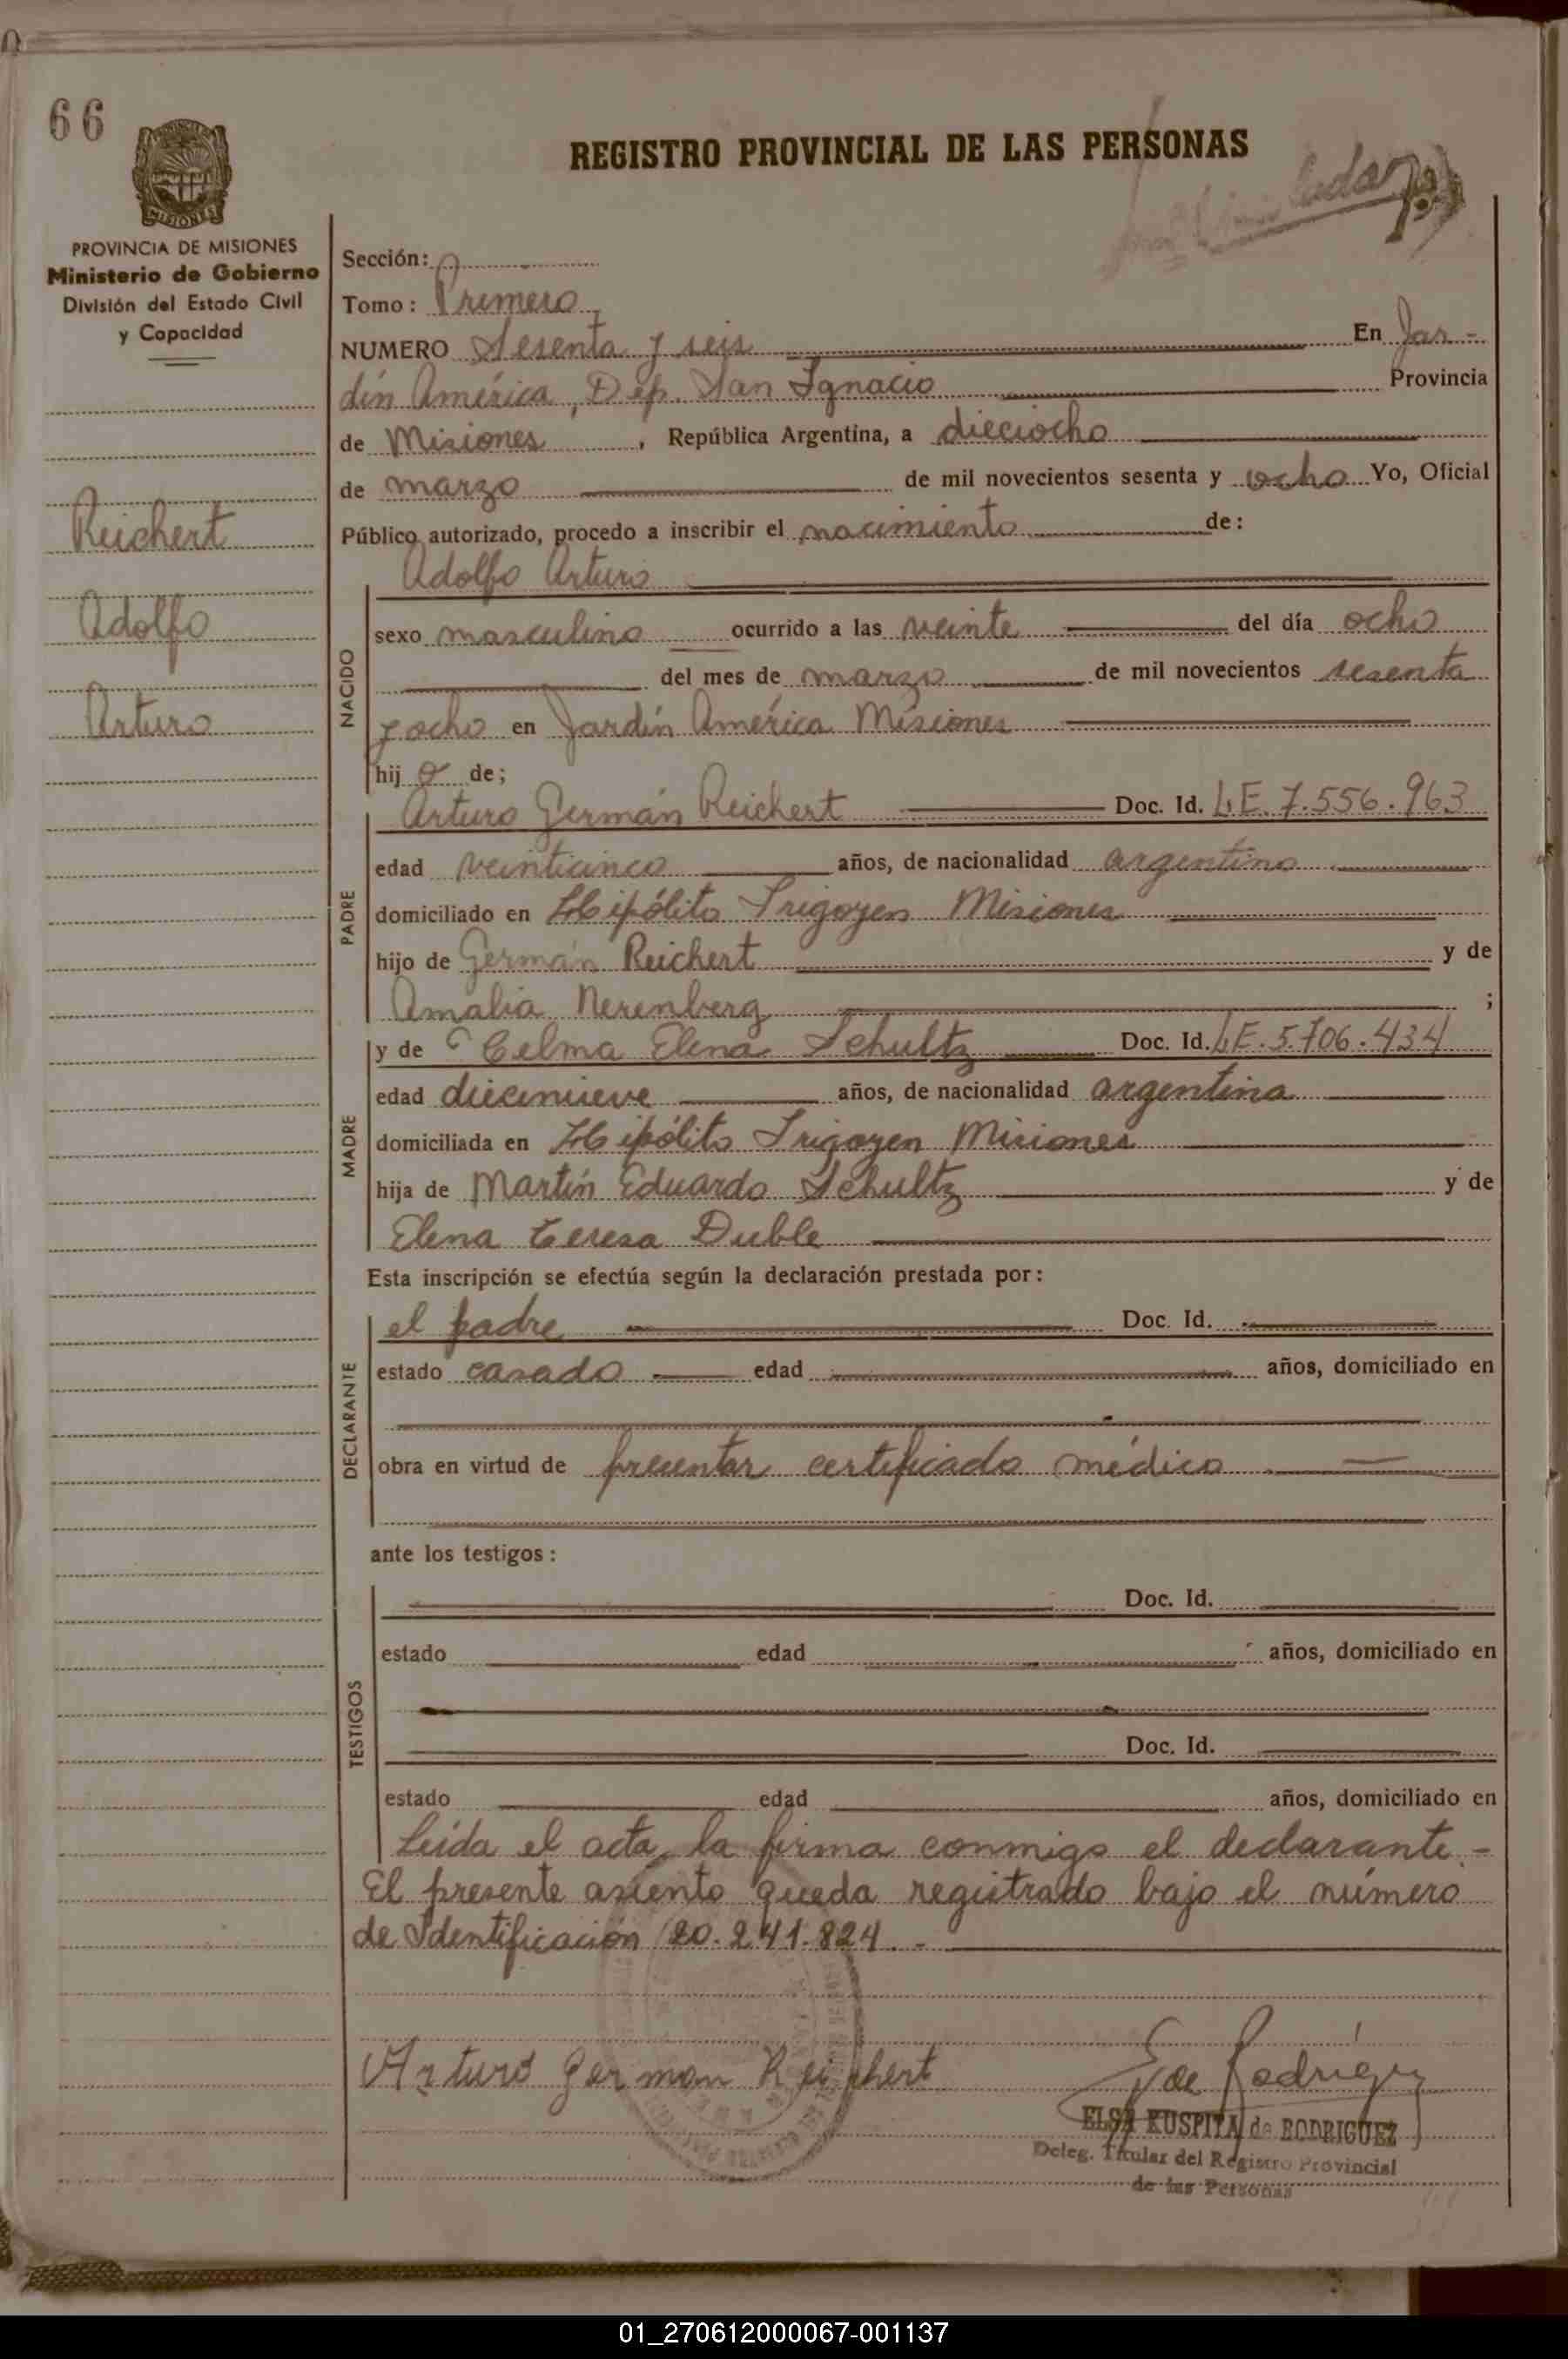 66
REGISTRO PROVINCIAL DE LAS PERSONAS
MISIONES
PROVINCIA DE MISIONES
Ministerio de Gobierno
División del Estado Civil
y Capacidad
Reichert
Adolfo
Arturo
Sección:
Tomo: Primero
NUMERO Sesenta y seis En Jar-
dín América, Dep. San Ignacio Provincia
de Misiones, República Argentina, a dieciocho
de marzo de mil novecientos sesenta y ocho Yo, Oficial
Público autorizado, procedo a inscribir el nacimiento de:
Adolfo Arturo
NACIDO
sexo masculino ocurrido a las veinte del día ocho
del mes de marzo de mil novecientos sesenta
y ocho en Jardín América Misiones
hij o de;
PADRE
Arturo Germán Reichert Doc. Id. L.E. 7.556.963
edad veinticinco años, de nacionalidad argentino
domiciliado en Hipólito Irigoyen Misiones
hijo de Germán Reichert y de
Amalia Nerenberg ;
MADRE
y de Celma Elena Schultz Doc. Id. L.E. 5.706.434
edad diecinueve años, de nacionalidad argentina
domiciliada en Hipólito Irigoyen Misiones
hija de Martín Eduardo Schultz y de
Elena Teresa Duble
Esta inscripción se efectúa según la declaración prestada por:
DECLARANTE
el padre Doc. Id.
estado casado edad años, domiciliado en
obra en virtud de presentar certificado médico
ante los testigos:
TESTIGOS
Doc. Id.
estado edad años, domiciliado en
Doc. Id.
estado edad años, domiciliado en
Leída el acta, la firma conmigo el declarante.-
El presente asiento queda registrado bajo el número
de Identificación 20.241.824.-
Arturo German Reichert
E de Rodríguez
ELSA KUSPITA de RODRIGUEZ
Deleg. Titular del Registro Provincial
de las Personas
01_270612000067-001137